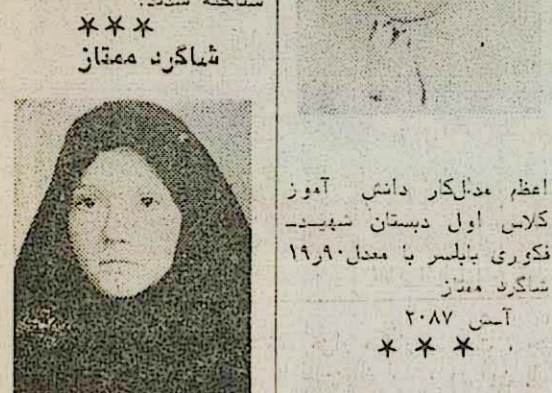 شناخته شدند.
***
شاگرد ممتاز
اعظم مدال‌کار دانش آموز
کلاس اول دبستان شهید-
فکوری بابلسر با معدل ۱۹٫۹۰
شاگرد ممتاز
آ-س ۲۰۸۷
***